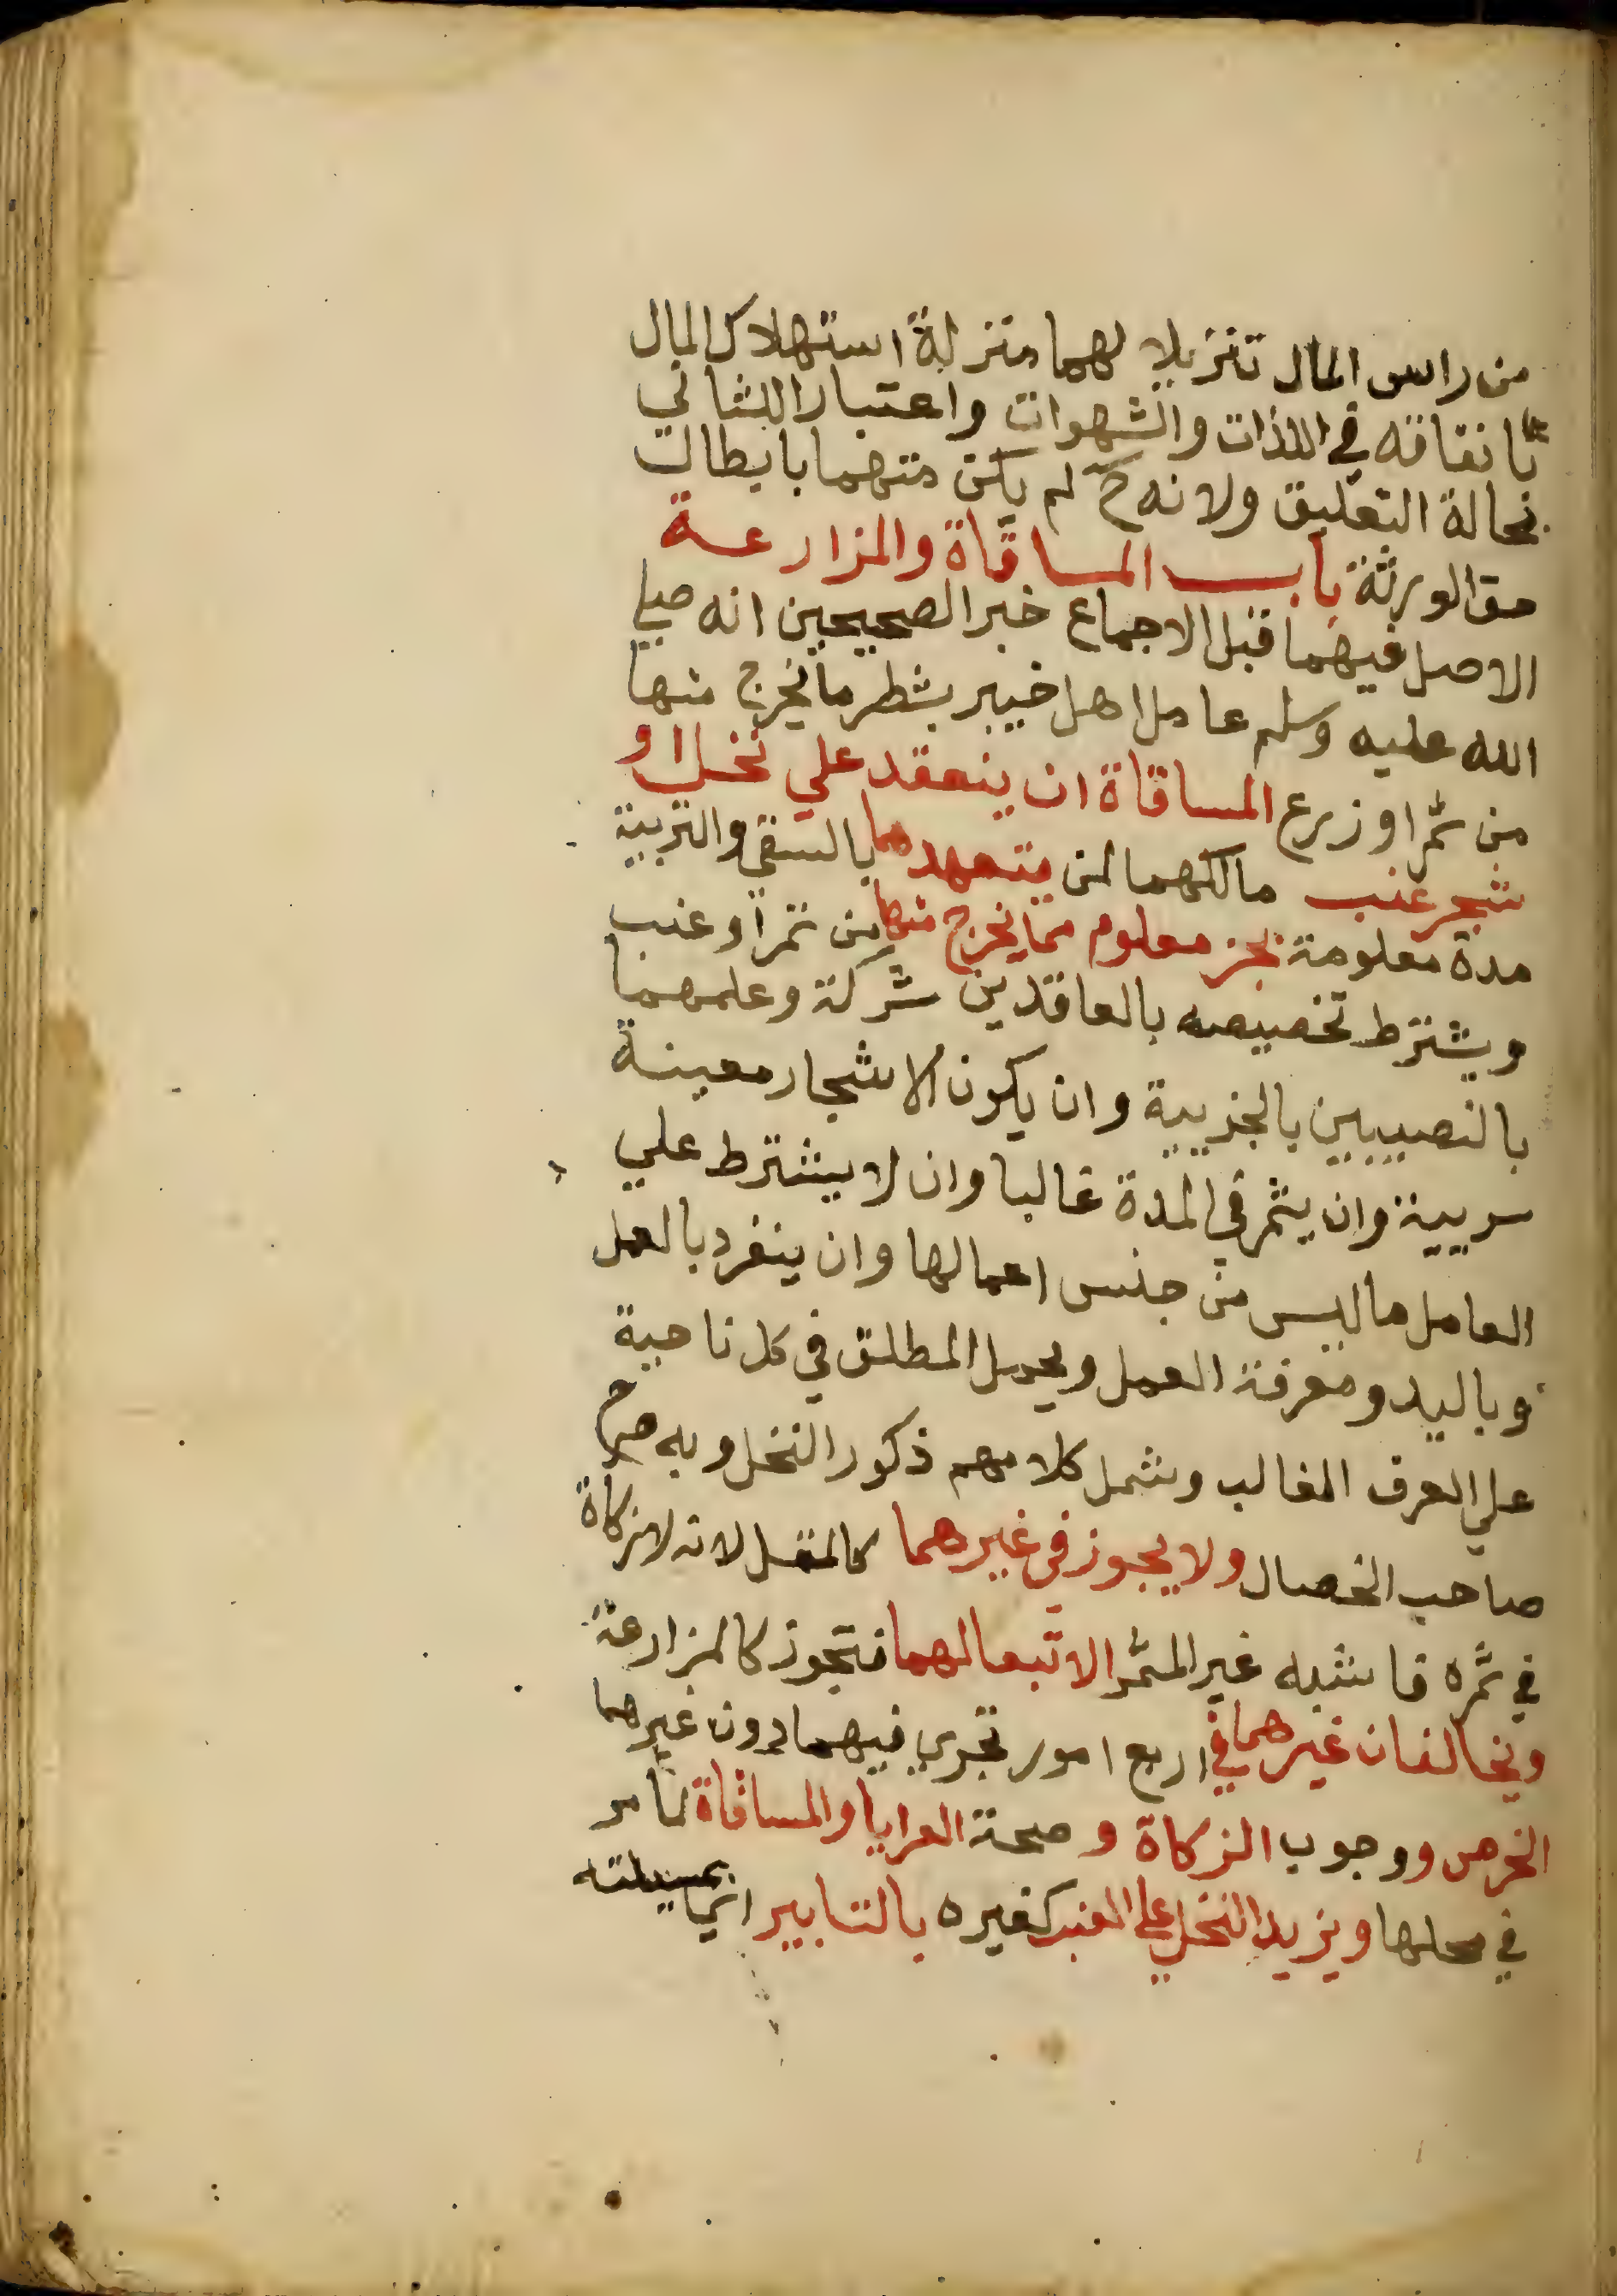 من راس المال تنزيلا لهما منزلة استهلاك المال
بانفاقه في اللذات والشهوات واعتبارا للثاني
بحالة التعليق ولانه ح لم يكن متهما بابطال
حق الورثة باب المساقاة والمزارعة
الاصل فيهما قبل الاجماع خبر الصحيحين انه صلي
الله عليه وسلم عامل اهل خيبر بشطر ما يخرج منها
من ثمر او زرع المساقاة ان ينعقد علي نخل او
شجر عنب مالكهما لمن يتعهدهما بالسقي والتربية
مدة معلومة بجز معلوم مما يخرج منهما من تمر او عنب
ويشترط تخصيصه بالعاقدين شركة وعلمهما
بالنصيبين بالجزيية وان يكون الاشجار معينة
مريية وان يثمر في المدة غالبا وان لا يشترط علي
العامل ما ليس من جنس اعمالها وان ينفرد بالعمل
وباليد ومعرفة العمل ويحمل المطلق في كل ناحية
علي العرف الغالب وشمل كلامهم ذكور النخل وبه صرح
صاحب الخصال ولا يجوز في غيرهما كالمقل لانه لا زكاة
في ثمره فاشبه غير المثمر الا تبعا لهما فتجوز كالمزارعة
ويخالفان غيرهما في اربع امور تجري فيهما دون غيرهما
الخرص ووجوب الزكاة وصحة العرايا والمساقاة لما مر
في محلها ويزيد النخل علي العنب كغيره بالتابير اي